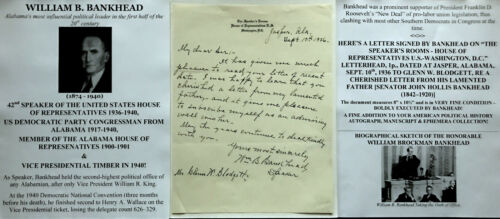 WILLIAM B. BANKHEAD
Alabama's most influential political leader in the first half of the
20th century
(1874 - 1940)
42nd SPEAKER OF THE UNITED STATES HOUSE
OF REPRESENTATIVES 1936-1940,
US DEMOCRATIC PARTY CONGRESSMAN FROM
ALABAMA 1917-1940,
MEMBER OF THE ALABAMA HOUSE OF
REPRESENTATIVES 1900-1901
&
VICE PRESIDENTIAL TIMBER IN 1940!
As Speaker, Bankhead held the second-highest political office of
any Alabamian, after only Vice President William R. King.
At the 1940 Democratic National Convention (three months
before his death), he finished second to Henry A. Wallace on the
Vice Presidential ticket, losing the delegate count 626-329.
The Speaker's Rooms
House of Representatives U.S.
Washington, D.C.
Jasper, Ala.
Sept. 10th, 1936
My dear Sir:-
It has given me much
pleasure to read your letter of recent
date. I am happy to learn that you
cherished a letter from my lamented
Father, and it gives me pleasure
to subscribe myself as an admiring
well wisher.
May the years continue to deal kindly
with you.
Yours most sincerely,
Wm B Bankhead
Speaker
Mr. Glenn W. Blodgett
Bankhead was a prominent supporter of President Franklin D.
Roosevelt's "New Deal" of pro-labor union legislation, thus
clashing with most other Southern Democrats in Congress at the
time.
<<>>
HERE'S A LETTER SIGNED BY BANKHEAD ON "THE
SPEAKER'S ROOMS - HOUSE OF
REPRESENTATIVES U.S.-WASHINGTON, D.C."
LETTERHEAD, 1p., DATED AT JASPER, ALABAMA,
SEPT. 10th, 1936 TO GLENN W. BLODGETT, RE A
CHERISHED LETTER FROM HIS LAMENTED
FATHER [SENATOR JOHN HOLLIS BANKHEAD
(1842-1920)]
The document measures 8" x 10½" and is in VERY FINE CONDITION -
BOLDLY EXECUTED BY BANKHEAD.
A FINE ADDITION TO YOUR AMERICAN POLITICAL HISTORY
AUTOGRAPH, MANUSCRIPT & EPHEMERA COLLECTION!
BIOGRAPHICAL SKETCH OF THE HONORABLE
WILLIAM BROCKMAN BANKHEAD
William B. Bankhead Taking the Oath of Office